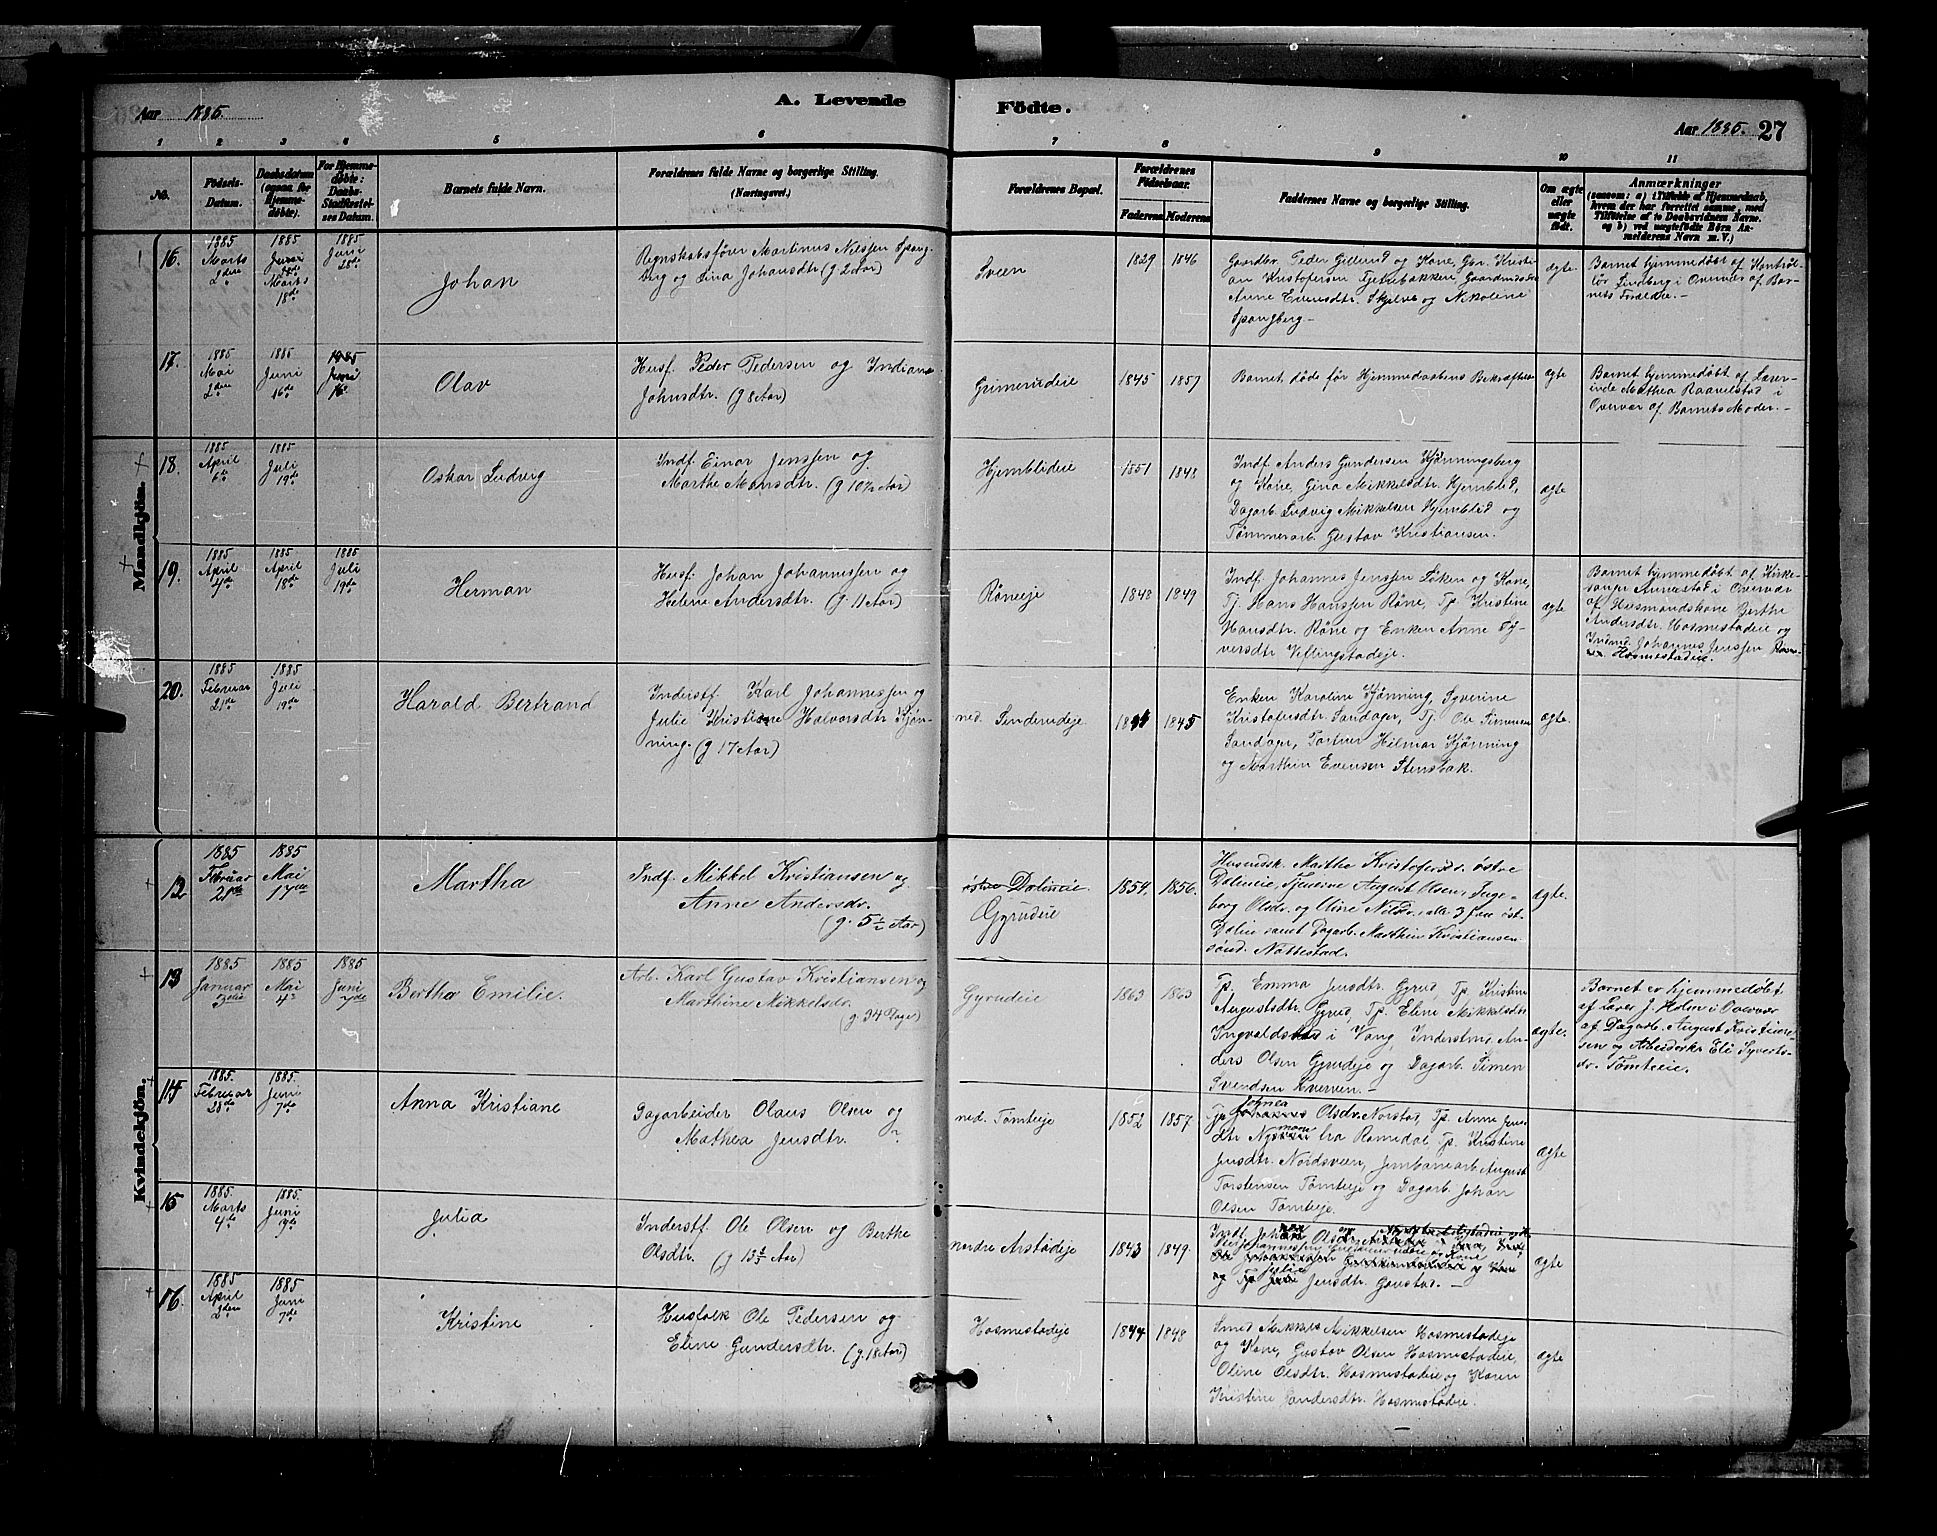 Aar 1885.
A. Levende
Födte.
Aar 1885. 27
1 2 3 4 5 6 7 8 9 10 11
No.
Födsels-Datum.
Daabsdatum (ogsaa for Hjemmedöbte).
For Hjemmedöbte: Daabs-Stadfæstelses Datum.
Barnets fulde Navn.
Forældrenes fulde Navne og borgerlige Stilling.
(Næringsvei.)
Forældrenes Bopæl.
Forældrenes Födselsaar.
Faderens Moderens
Faddernes Navne og borgerlige Stilling.
Om ægte eller uægte födt.
Anmærkninger
(saasom: a) i Tilfælde af Hjemmedaab,
hvem der har forrettet samme, med
Tilföielse af to Daabsvidners Navne.
og b) ved uægtefödte Börn Anmelderens Navn m. V.)
Mandkjön.
16.
1885 Marts 2den
1885 Marts 18de
1885 Juni 28de
Johan
Regnskabsfører Martinus Nilssen Spangberg og Lina Johansdtr (g 20 Aar)
Sveen
1829 1846
Gaardbr. Peder Gillund og Kone, Gbr. Kristian Kristofersen
Anne Evensdtr. Skjelve og Nikoline
Spangberg
ægte
Barnet hjemmedöbt af Kontrolör Lindberg i Overvær af Barnets Forældre.
17.
1885 Mai 2den
1885 Juni 16de
1885 Juni 16de
Olav
Husf. Peder Pedersen og Indiana
Johnsdtr. (g 8 Aar)
Grimerudeie
1845 1857
Barnet døde før Hjemmedaabens Bekræftelse
ægte
Barnet hjemmedöbt af Lærerinde Mathea Raavelstad i
Overvær af Barnets Moder.
18.
1885 April 6te
1885 Juli 19de
Oskar Ludvig
Indf. Einar Jenssen og
Marthe Hansdtr. (g 10½ Aar)
Hjemblideie
1851 1848
Indf. Anders Gundersen Kjønningsberg
og Kone, Gina Mikkelsdtr. Hjemblid,
Dagarb. Ludvig Mikkelsen Hjemblid og
Tømmerarb. Gustav Kristiansen.
ægte
19.
1885 April 4de
1885 April 18de
1885 Juli 19de
Herman
Husf. Johan Johannessen og
Helene Andersdtr. (g. 11 Aar)
Røneeje
1848 1849
Indf. Johannes Jenssen Løken og Kone,
Tj. Hans Hanssen Røne, Tp. Kristine
Hansdtr. Røne og Enken Anne Syversdtr Viflingstadeje.
ægte
Barnet hjemmedöbt af Kirkesanger Annestad i Overvær
af Husmandskone Berthe
Andersdtr. Hosmestadeie og
Inderst Johannes Jenssen
Hosmestadeie.
20.
1885 Februar 21de
1885 Juli 19de
Harald Bertrand
Inderstf. Karl Johannessen og
Julie Kristiane Halvorsdtr Kjønning. (g 17 Aar)
ned. Sinderudeje
1845
Enken Karoline Kjønning, Syverine
Kristofersdtr. Sandager, Tj. Ole Simensen
Sandager, Portner Hilmar Kjønning
og Marthin Evensen Stensbak.
ægte.
Kvindekjön.
12
1885 Februar 28de
1885 Mai 17de
Martha
Indf. Mikkel Kristiansen og
Anne Andersdr.
(g. 5½ Aar)
østre Dølineie.
Gyrudeie
1854. 1856.
Husmdsk. Marthe Kristofersdr. østre
Dølineie, Tjenerne August Olsen, Ingeborg Olsdr. og Oline Nilsdr. alle 3 fra øst.
Dølin samt Dagarb. Marthin Kristiansen
sönd. Nøttestad.
ægte.
13
1885 Januar 3die
1885 Mai 4de
1885 Juni 7de
Berthe Emilie.
Arb. Karl Gustav Kristiansen og
Marthine Mikkelsdr.
(g. 34 Dage)
Gyrudeie
1863 1863
Tp. Emma Jensdtr. Gyrud, Tp. Kristine
Augustsdtr. Gyrud, Tp. Eline Mikkelsdtr
i Vang, Anders Olsen Gyrudeje og Dagarb. Simen
Svendsen Kverven.
ægte.
Barnet er hjemmedöbt
af Lærer J. Holm i Overvær
af Dagarb. August Kristiansen og Arbeiderske Eli Syvertsdr. Tomteeie.
14
1885. Februar 28de
1885. Juni 7de
Anna Kristiane
Dagarbeider Olaus Olsen og
Mathea Jensdtr.
ned. Tomteeje
1852 1857
Tp. Agnea Olsdr. Norstad, Tp. Anne Jensdtr fra Romedal, Tp. Kristine
Jensdtr. Nordsveen, Jernbanearb. August
Torstensen Tomteeje og Dagarb. Johan
Olsen Tomteeje.
ægte
15
1885. Marts 4de
1885. Juni
Julia
Inderstf. Ole Olsen og Berthe
Olsdtr. (g 13 Aar)
nedre Arstadeje
1843 1849.
Indf.
og Tp. Julie Jensdtr. Gaustad.
ægte
16.
1885 April 2den
1885 Juni 7de
Kristine
Husfolk Ole Pedersen og
Eline Gundersdtr. (g. 18 Aar)
Hosmestadeje
1844 1848
Smed Mikkel Mikkelsen Hosmestadeje
og Kone, Gustav Olsen Hosmestadeie,
Oline Olsdtr. Hosmestadeie og Karen
Kristine Gundersdtr. Hosmestadeie.
ægte